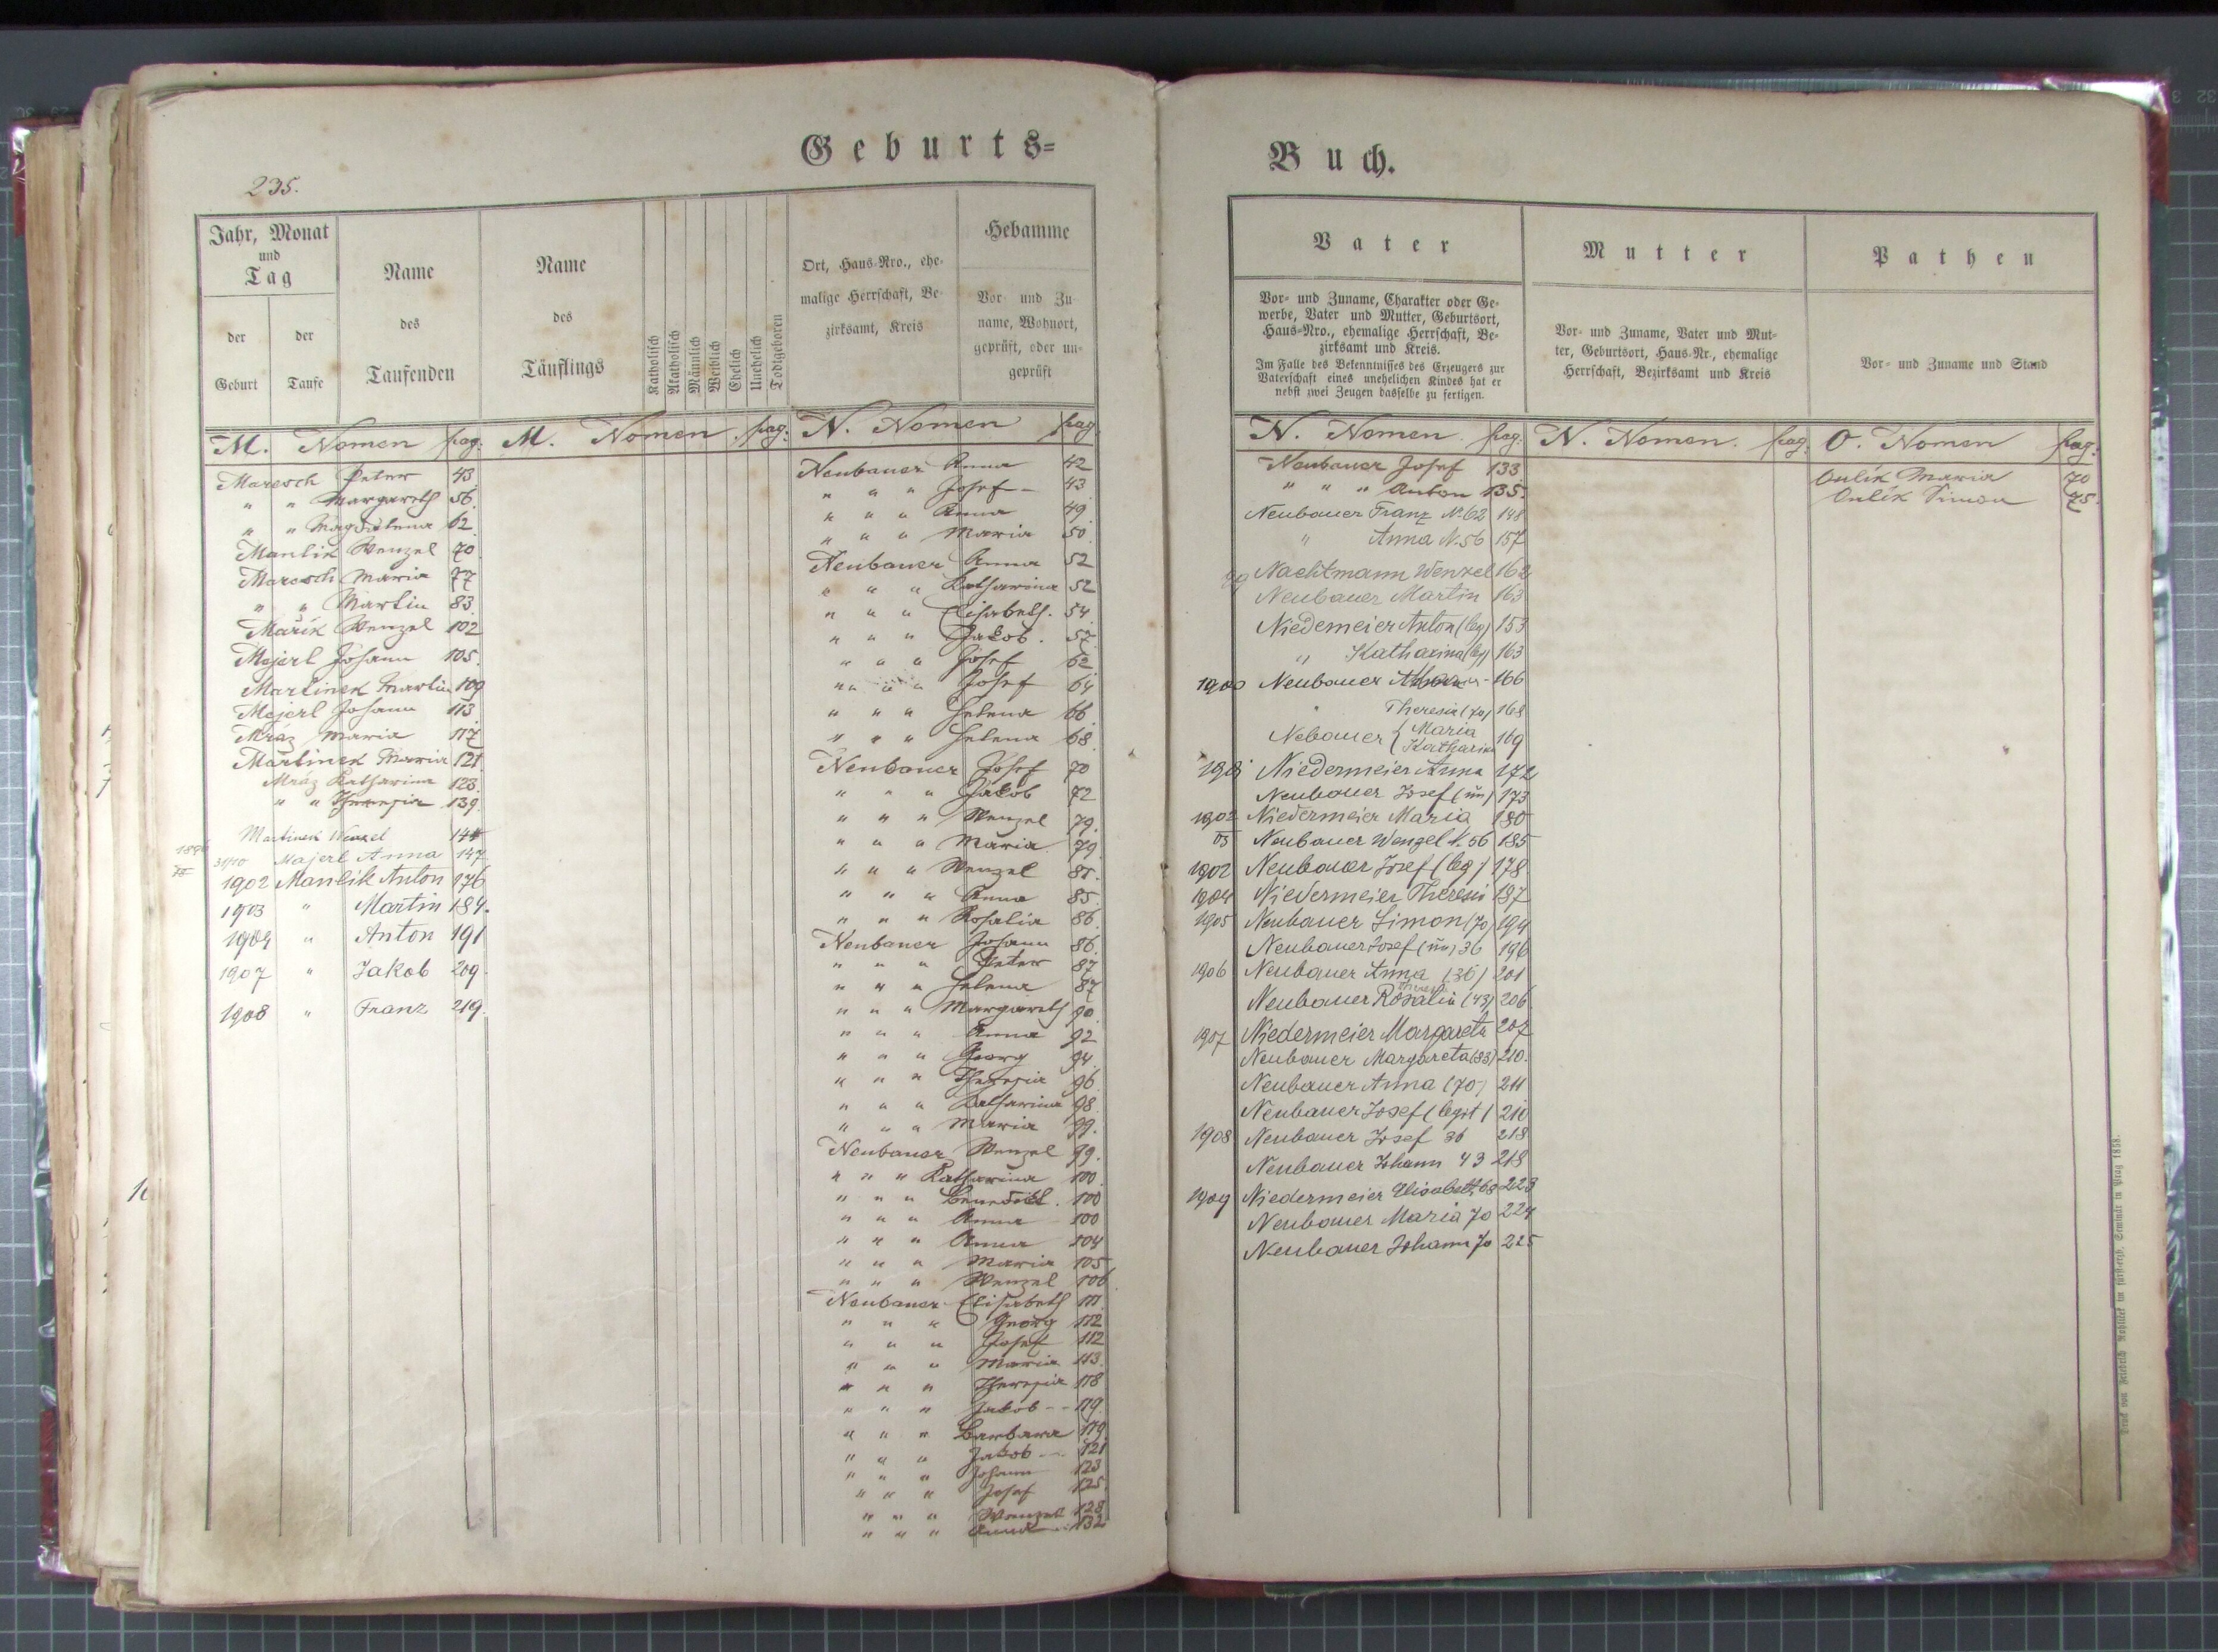 Geburts=
235.
Jahr, Monat
und
Tag
der
Geburt
der
Taufe
Name
des
Taufenden
Name
des
Täuflings
Katholisch
Akatholisch
Männlich
Weiblich
Ehelich
Unehelich
Todtgeboren
Ort, Haus-Nro., ehe-
malige Herrschaft, Be-
zirksamt, Kreis
Hebamme
Vor- und Zu-
name, Wohnort,
geprüft, oder un-
geprüft
M. Nomen pag.
Maresch Peter 43
" " Margareth 56.
" " Magdalena 62
Manlik Wenzel 70
Maresch Maria 77
" " Martin 83.
Mařik Wenzel 102
Mejerl Johann 105.
Martinek Martin 109
Mejerl Johann 113
Mráz Maria 117
Martinek Maria 121
Mráz Katharina 123.
" " Theresia 139.
Martinek Wenzel
31/10 Majerl Anna 147
1902 Manlik Anton 176
1903 " Martin 184.
1904 " Anton 191
1907 " Jakob 209
1908 " Franz 219.
M. Nomen. pag:
N. Nomen pag
Neubauer Anna 42
" " " Josef - 43
" " " Anna 49
" " " Maria 50.
Neubauer Anna 52
" " " Katharina 52
" " " Elisabeth. 54.
" " " Jakob. 57.
" " " Josef 62
" " " Josef 64
" " " Helena 66
" " " Helena 68.
Neubauer Josef 70
" " " Jakob 72
" " " Wenzel 79.
" " " Maria 79
" " " Wenzel 81.
" " " Anna 85.
" " " Rosalia 86.
Neubauer Johann 86.
" " " Peter 87
" " " Helena 87
" " " Margareth 90.
" " " Anna 92
" " " Georg 94.
" " " Theresia 96
" " " Katharina 98.
" " " Maria 99.
Neubauer Wenzel 99.
" " " Katharina 100.
" " " Benedikt. 100
" " " Anna 100
" " " Anna 104
" " " Maria 105
" " " Wenzel 106
Neubauer Elisabeth 111.
" " " Georg 112
" " " Josef 112
" " " Maria 113.
" " " Theresia 118
" " " Jakob -- 119.
" " " Barbara 119.
" " " Jakob -- 121
" " " Johann 123
" " " Josef 125.
" " " Wenzel 128
" " " Anna 132
Buch.
Vater
Vor- und Zuname, Charakter oder Ge-
werbe, Vater und Mutter, Geburtsort,
Haus-Nro., ehemalige Herrschaft, Be-
zirksamt und Kreis.
Im Falle des Bekenntnisses des Erzeugers zur
Vaterschaft eines unehelichen Kindes hat er
nebst zwei Zeugen dasselbe zu fertigen.
Mutter
Vor- und Zuname, Vater und Mut-
ter, Geburtsort, Haus-Nr., ehemalige
Herrschaft, Bezirksamt und Kreis
Pathen
Vor- und Zuname und Stand
N. Nomen. pag.
Neubauer Josef 133
" " " Anton 135.
Neubauer Franz N.62 148
" Anna N.56 157
99 Nachtmann Wenzel 162
Neubauer Martin 163
Niedemeier Anton (leg) 153
" Katharina (leg) 163
1900 Neubauer 166
" Theresia (70) 168
Nebauer { Maria
Katharina 169
1901 Niedermeier Anna 172
Neubauer Josef (un) 173
1902 Niedermeier Maria 180
03 Neubauer Wenzel N. 56 185
1902 Neubauer Josef (leg) 178
1904 Niedermeier Theresi 187
1905 Neubauer Simon (70) 194
Neubauer Josef (un) 36 196
1906 Neubauer Anna (36) 201
Neubauer Rosalia (43) 206
1907 Niedermeier Margareta 207
Neubauer Margareta (33) 210.
Neubauer Anna (70) 211
Neubauer Josef (legit) 210
1908 Neubauer Josef 36 218
Neubauer Johann 43 218
1909 Niedermeier Elisabeth 68 223
Neubauer Maria 70 224
Neubauer Johann 70 225
N. Nomen. pag.
O. Nomen pag.
Oulik Maria 70
Oulik Simon 75.
Druck von Friedrich Rohliček im fürst-erzb. Seminär in Prag 1858.